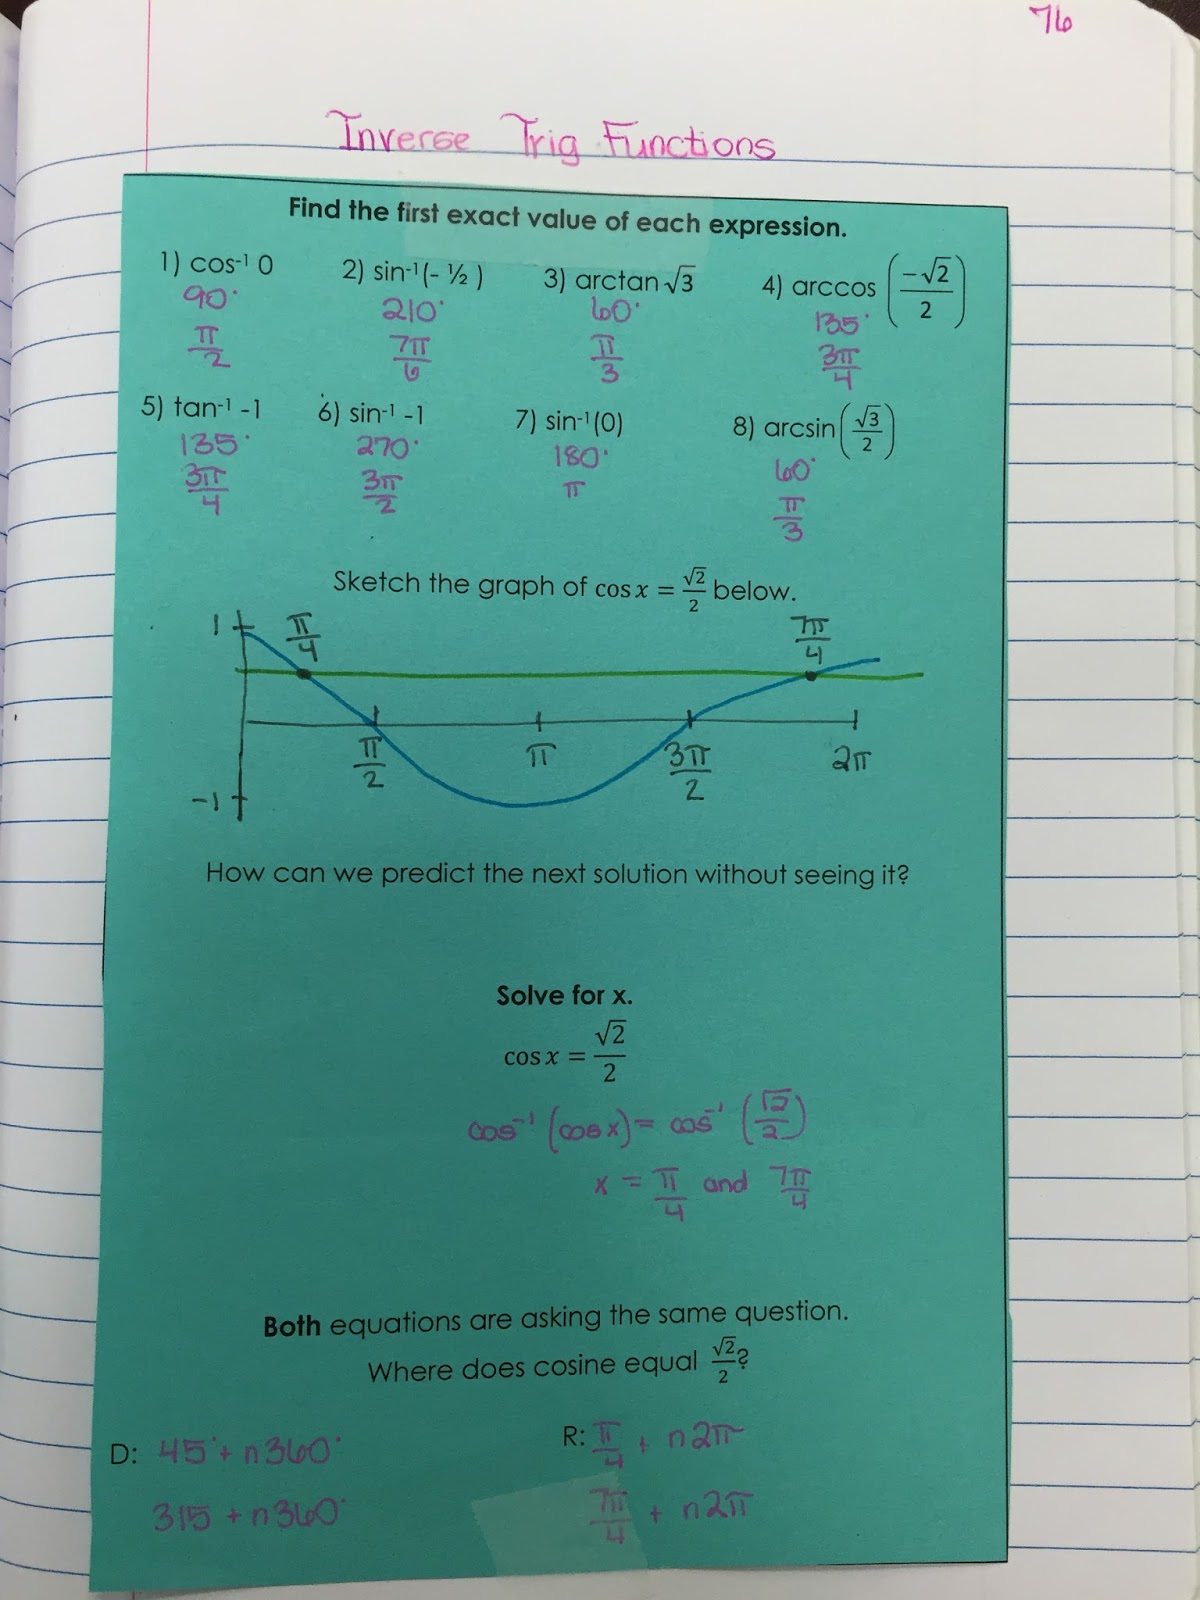 76
Inverse Trig Functions
Find the first exact value of each expression.
1) cos⁻¹ 0 2) sin⁻¹(- ½ ) 3) arctan √3 4) arccos (-√2/2)
90° 210° 60° 135°
π/2 7π/6 π/3 3π/4
5) tan⁻¹ -1 6) sin⁻¹ -1 7) sin⁻¹(0) 8) arcsin(√3/2)
135° 270° 180° 60°
3π/4 3π/2 π π/3
Sketch the graph of cos x = √2/2 below.
1 π/4 7π/4
π/2 π 3π/2 2π
-1
How can we predict the next solution without seeing it?
Solve for x.
cos x = √2/2
cos⁻¹ (cos x) = cos⁻¹ (√2/2)
x = π/4 and 7π/4
Both equations are asking the same question.
Where does cosine equal √2/2?
D: 45° + n360° R: π/4 + n2π
315 + n360° 7π/4 + n2π